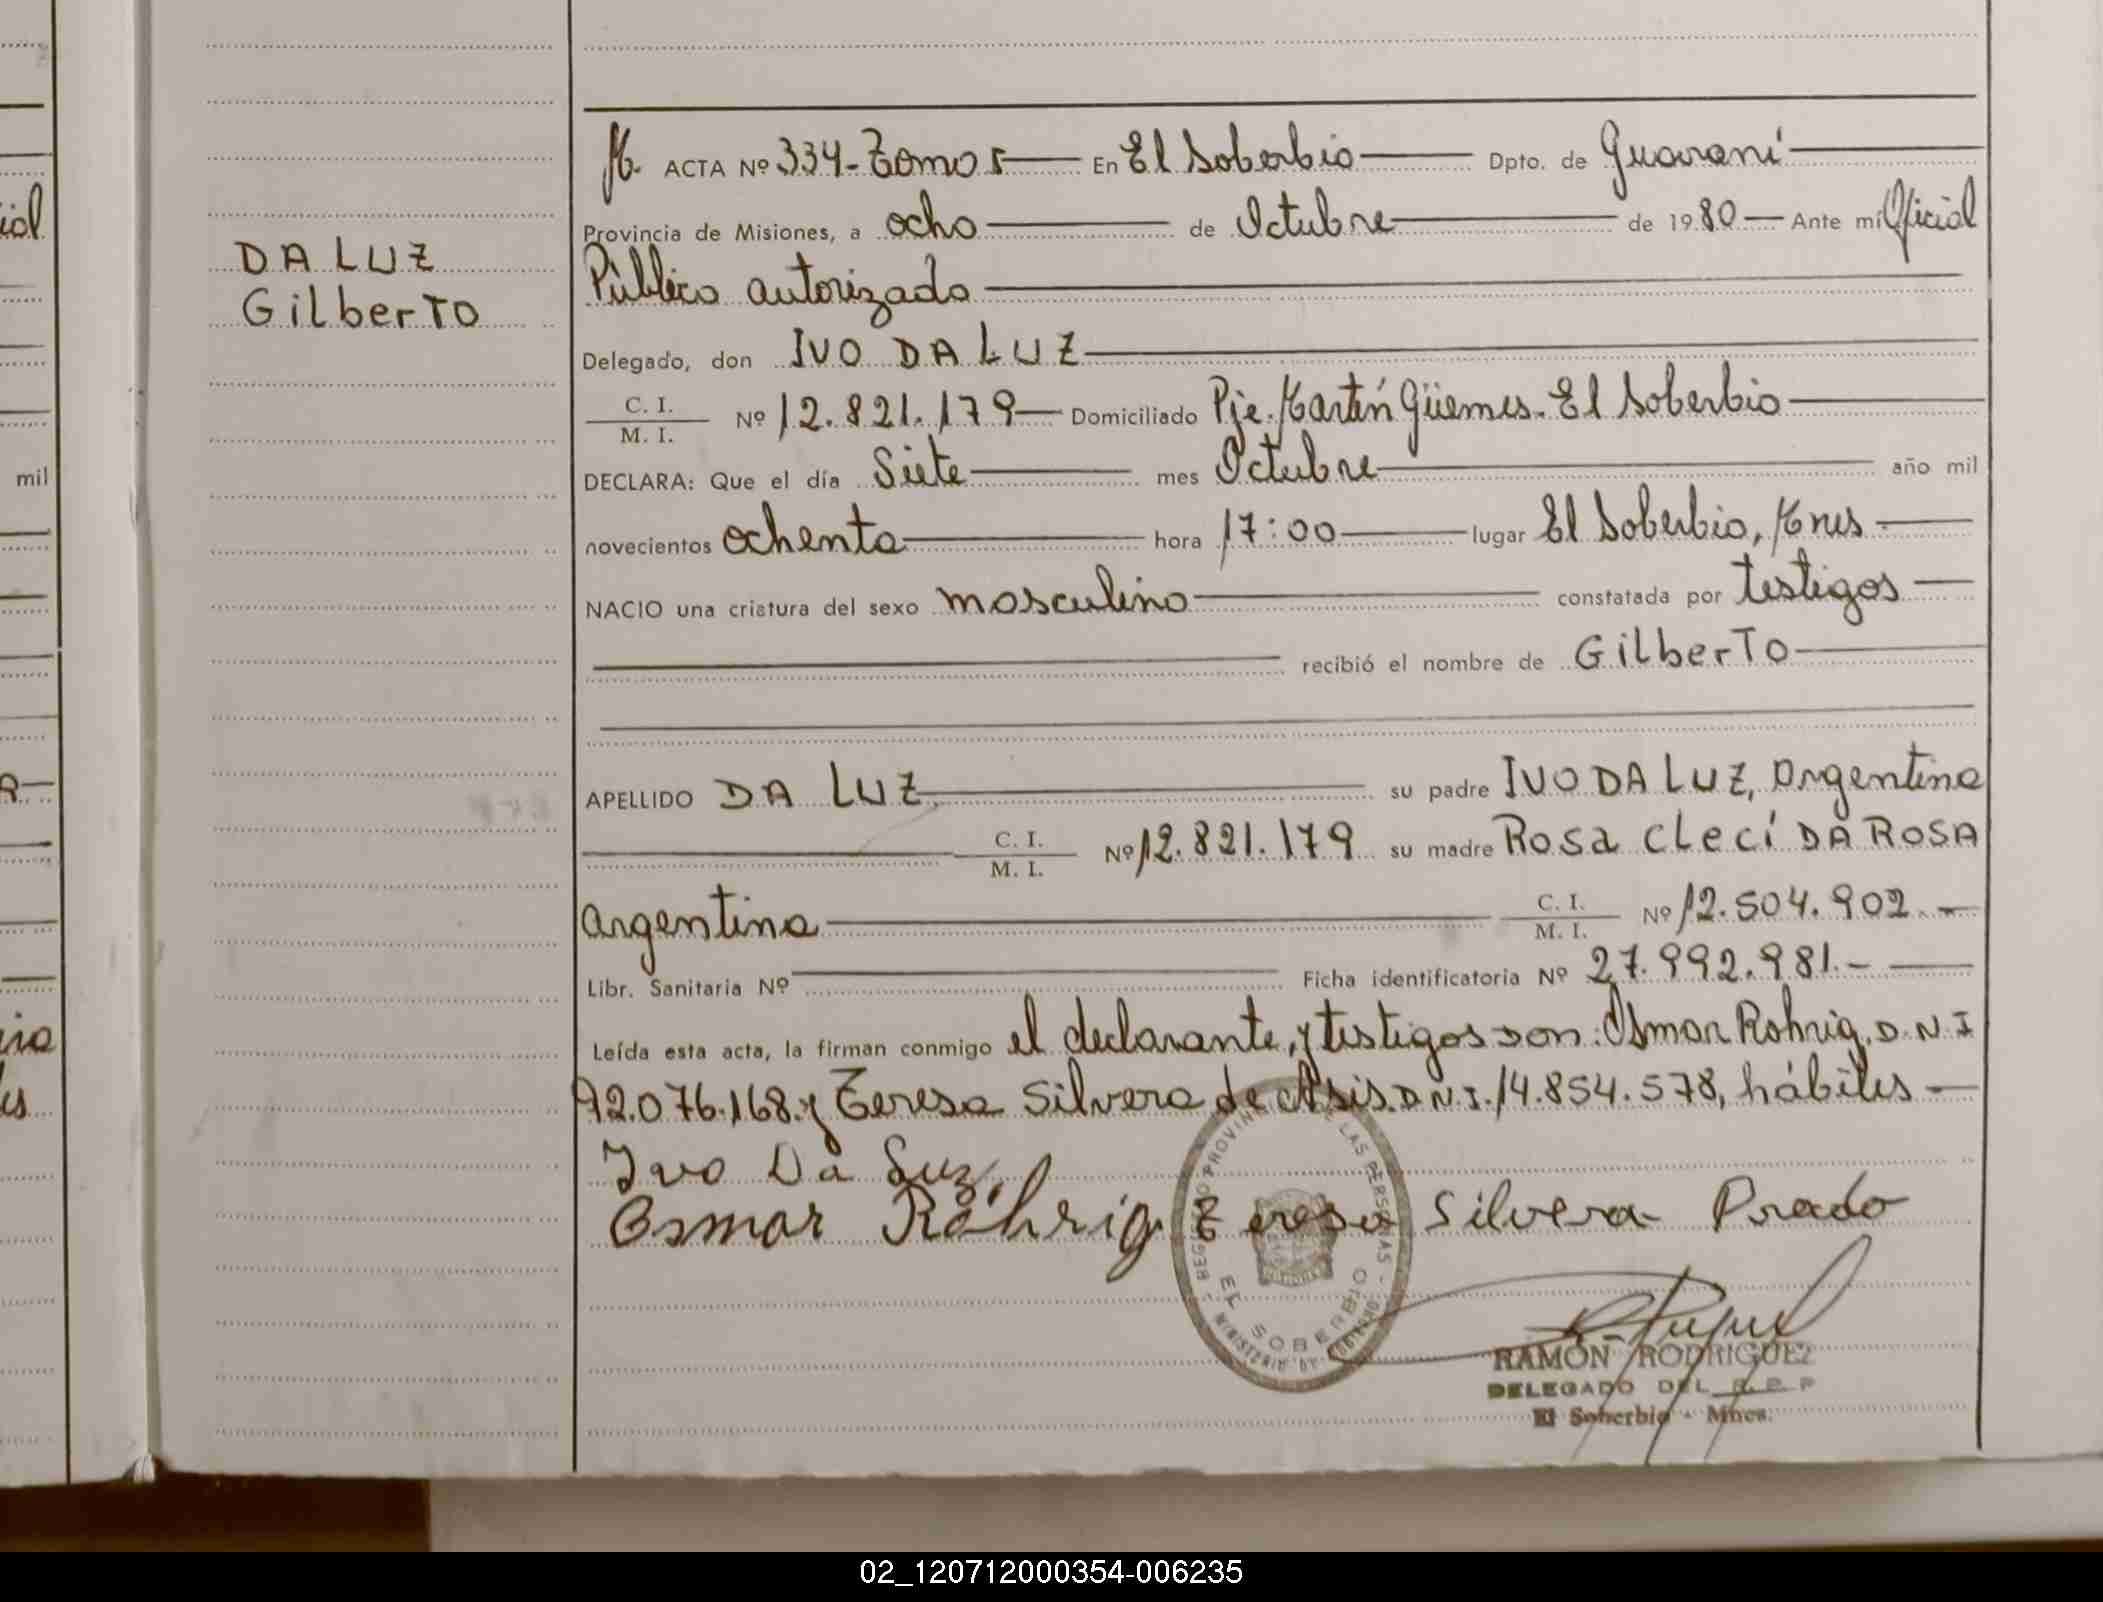 DA LUZ
GilberTo
M. ACTA Nº 334-Tomo 5 En El Soberbio Dpto. de Guarani
Provincia de Misiones, a ocho de Octubre de 1980 Ante mí Oficial
Público autorizado
Delegado, don IVO DA LUZ
C. I.
M. I. Nº 12.821.179 Domiciliado Pje. Martín Güemes. El Soberbio
DECLARA: Que el día Siete mes Octubre año mil
novecientos ochenta hora 17:00 lugar El Soberbio, Mnes
NACIO una criatura del sexo masculino constatada por testigos
recibió el nombre de GilberTo
APELLIDO DA LUZ su padre IVO DA LUZ, Argentino
C. I.
M. I. Nº 12.821.179 su madre Rosa Clecí DA ROSA
argentina C. I.
M. I. Nº 12.504.902.-
Libr. Sanitaria Nº Ficha identificatoria Nº 27.992.981.-
Leída esta acta, la firman conmigo el declarante, y testigos son: Osmar Rohrig. D.N.I
92.076.168 y Teresa Silvera de Asis. D.N.I. 14.854.578, hábiles
Ivo Da Luz,
Osmar Röhrig Teresa Silvera Prado
REGISTRO PROVINCIAL DE LAS PERSONAS - MINISTERIO DE GOBIERNO
EL SOBERBIO
RAMON RODRIGUEZ
DELEGADO DEL R. P. P
El Soberbio - Mnes.
mil
02_120712000354-006235